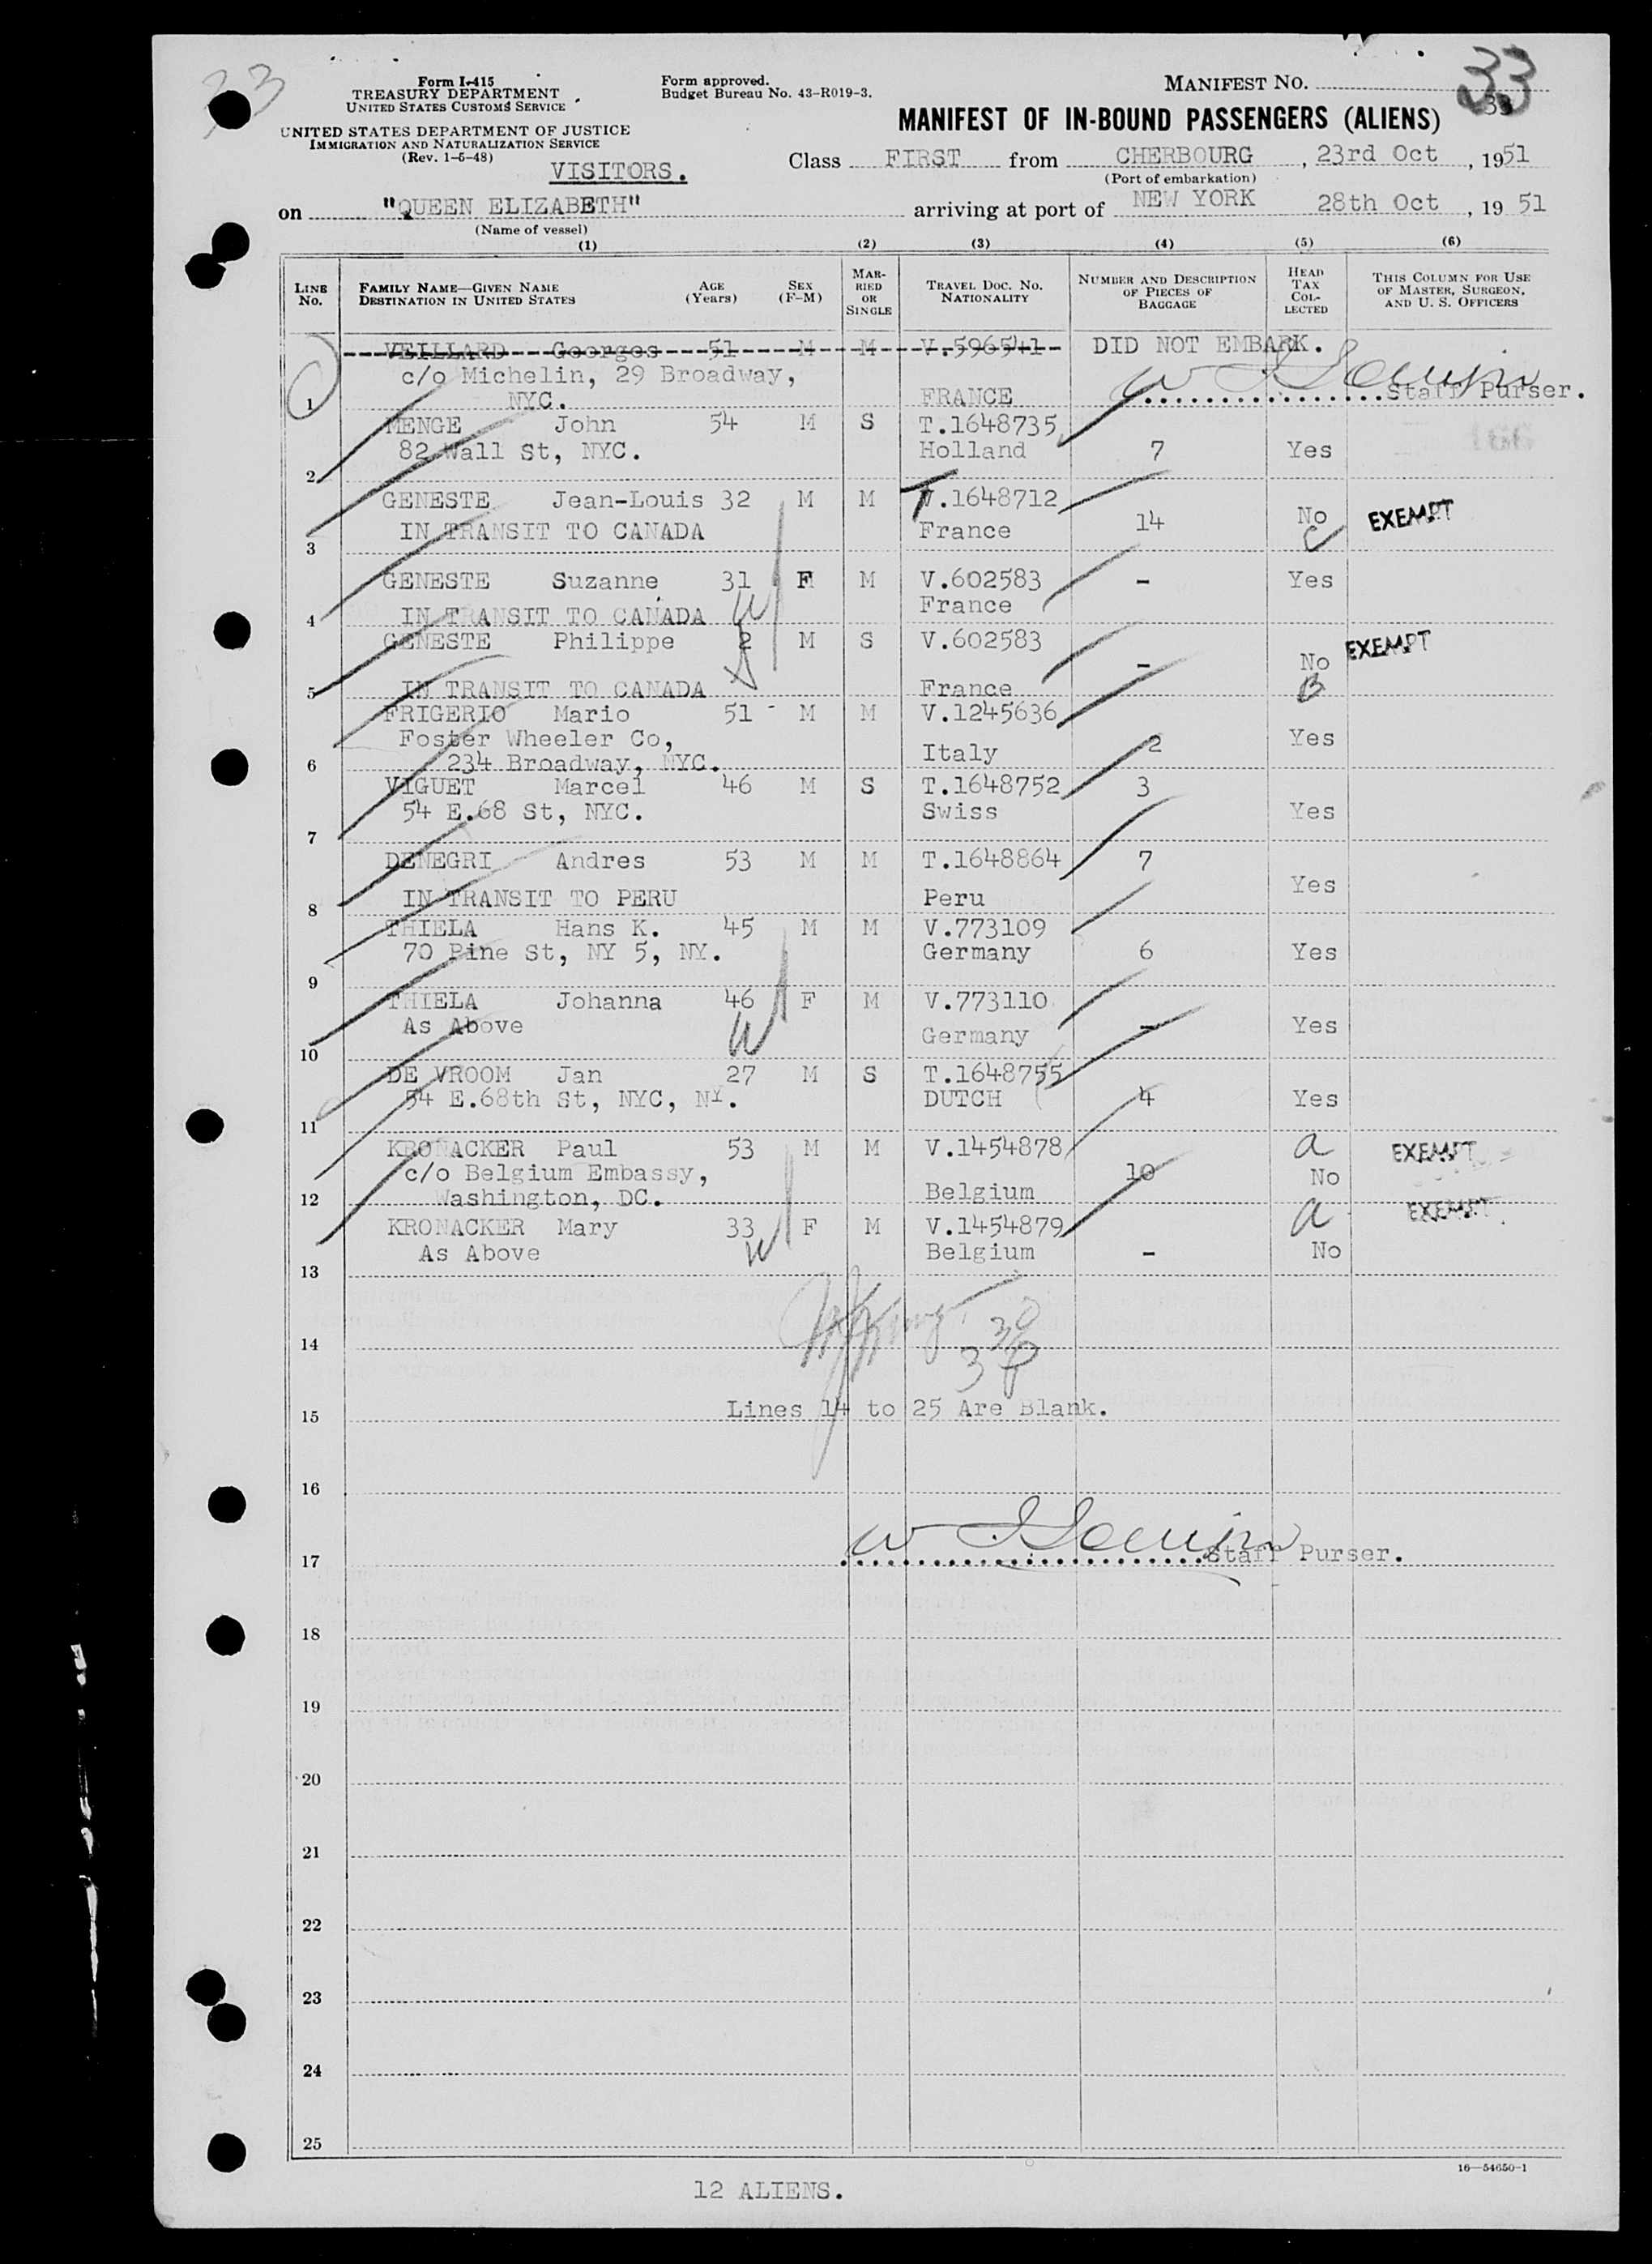 33
Form I-415
TREASURY DEPARTMENT
UNITED STATES CUSTOMS SERVICE
UNITED STATES DEPARTMENT OF JUSTICE
IMMIGRATION AND NATURALIZATION SERVICE
(Rev. 1-5-48)
VISITORS.
Form approved.
Budget Bureau No. 43-R019-3.
MANIFEST NO. 33
33
MANIFEST OF IN-BOUND PASSENGERS (ALIENS)
Class FIRST from CHERBOURG, 23rd Oct, 1951
(Port of embarkation)
on "QUEEN ELIZABETH" arriving at port of NEW YORK 28th Oct, 1951
(Name of vessel)
(1) (2) (3) (4) (5) (6)
LINE NO. FAMILY NAME—GIVEN NAME DESTINATION IN UNITED STATES AGE (Years) SEX (F-M) MARRIED OR SINGLE TRAVEL DOC. NO. NATIONALITY NUMBER AND DESCRIPTION OF PIECES OF BAGGAGE HEAD TAX COLLECTED THIS COLUMN FOR USE OF MASTER, SURGEON, AND U. S. OFFICERS
VEILLARD Georges 51 M M V.596541 DID NOT EMBARK.
c/o Michelin, 29 Broadway,
1 NYC. FRANCE Staff Purser.
MENGE John 54 M S T.1648735
82 Wall St, NYC. Holland 7 Yes
2
GENESTE Jean-Louis 32 M M T.1648712
IN TRANSIT TO CANADA France 14 No C EXEMPT
3
GENESTE Suzanne 31 F M V.602583 - Yes
4 IN TRANSIT TO CANADA W France
GENESTE Philippe 2 M S V.602583 - No EXEMPT
5 IN TRANSIT TO CANADA France B
FRIGERIO Mario 51 - M M V.1245636
Foster Wheeler Co, Italy 2 Yes
6 234 Broadway, NYC.
VIGUET Marcel 46 M S T.1648752 3
54 E.68 St, NYC. Swiss Yes
7
DENEGRI Andres 53 M M T.1648864 7
8 IN TRANSIT TO PERU Peru Yes
THIELA Hans K. 45 M M V.773109
70 Pine St, NY 5, NY. Germany 6 Yes
9
THIELA Johanna 46 F M V.773110
As Above W Germany - Yes
10
DE VROOM Jan 27 M S T.1648755
54 E.68th St, NYC, NY. DUTCH 4 Yes
11
KRONACKER Paul 53 M M V.1454878 a EXEMPT
c/o Belgium Embassy, 10 No
12 Washington, DC. Belgium
KRONACKER Mary 33 F M V.1454879 a EXEMPT
As Above W Belgium - No
13
14
15 Lines 14 to 25 Are Blank.
16
17 Staff Purser.
18
19
20
21
22
23
24
25
16—54650-1
12 ALIENS.